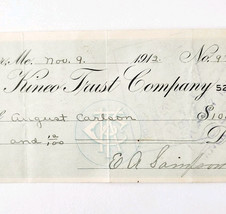 Me. Nov. 9. 1912 No. 9
Kineo Trust Company 52
August Carlson $10
and 12/100 D
E A Sampson